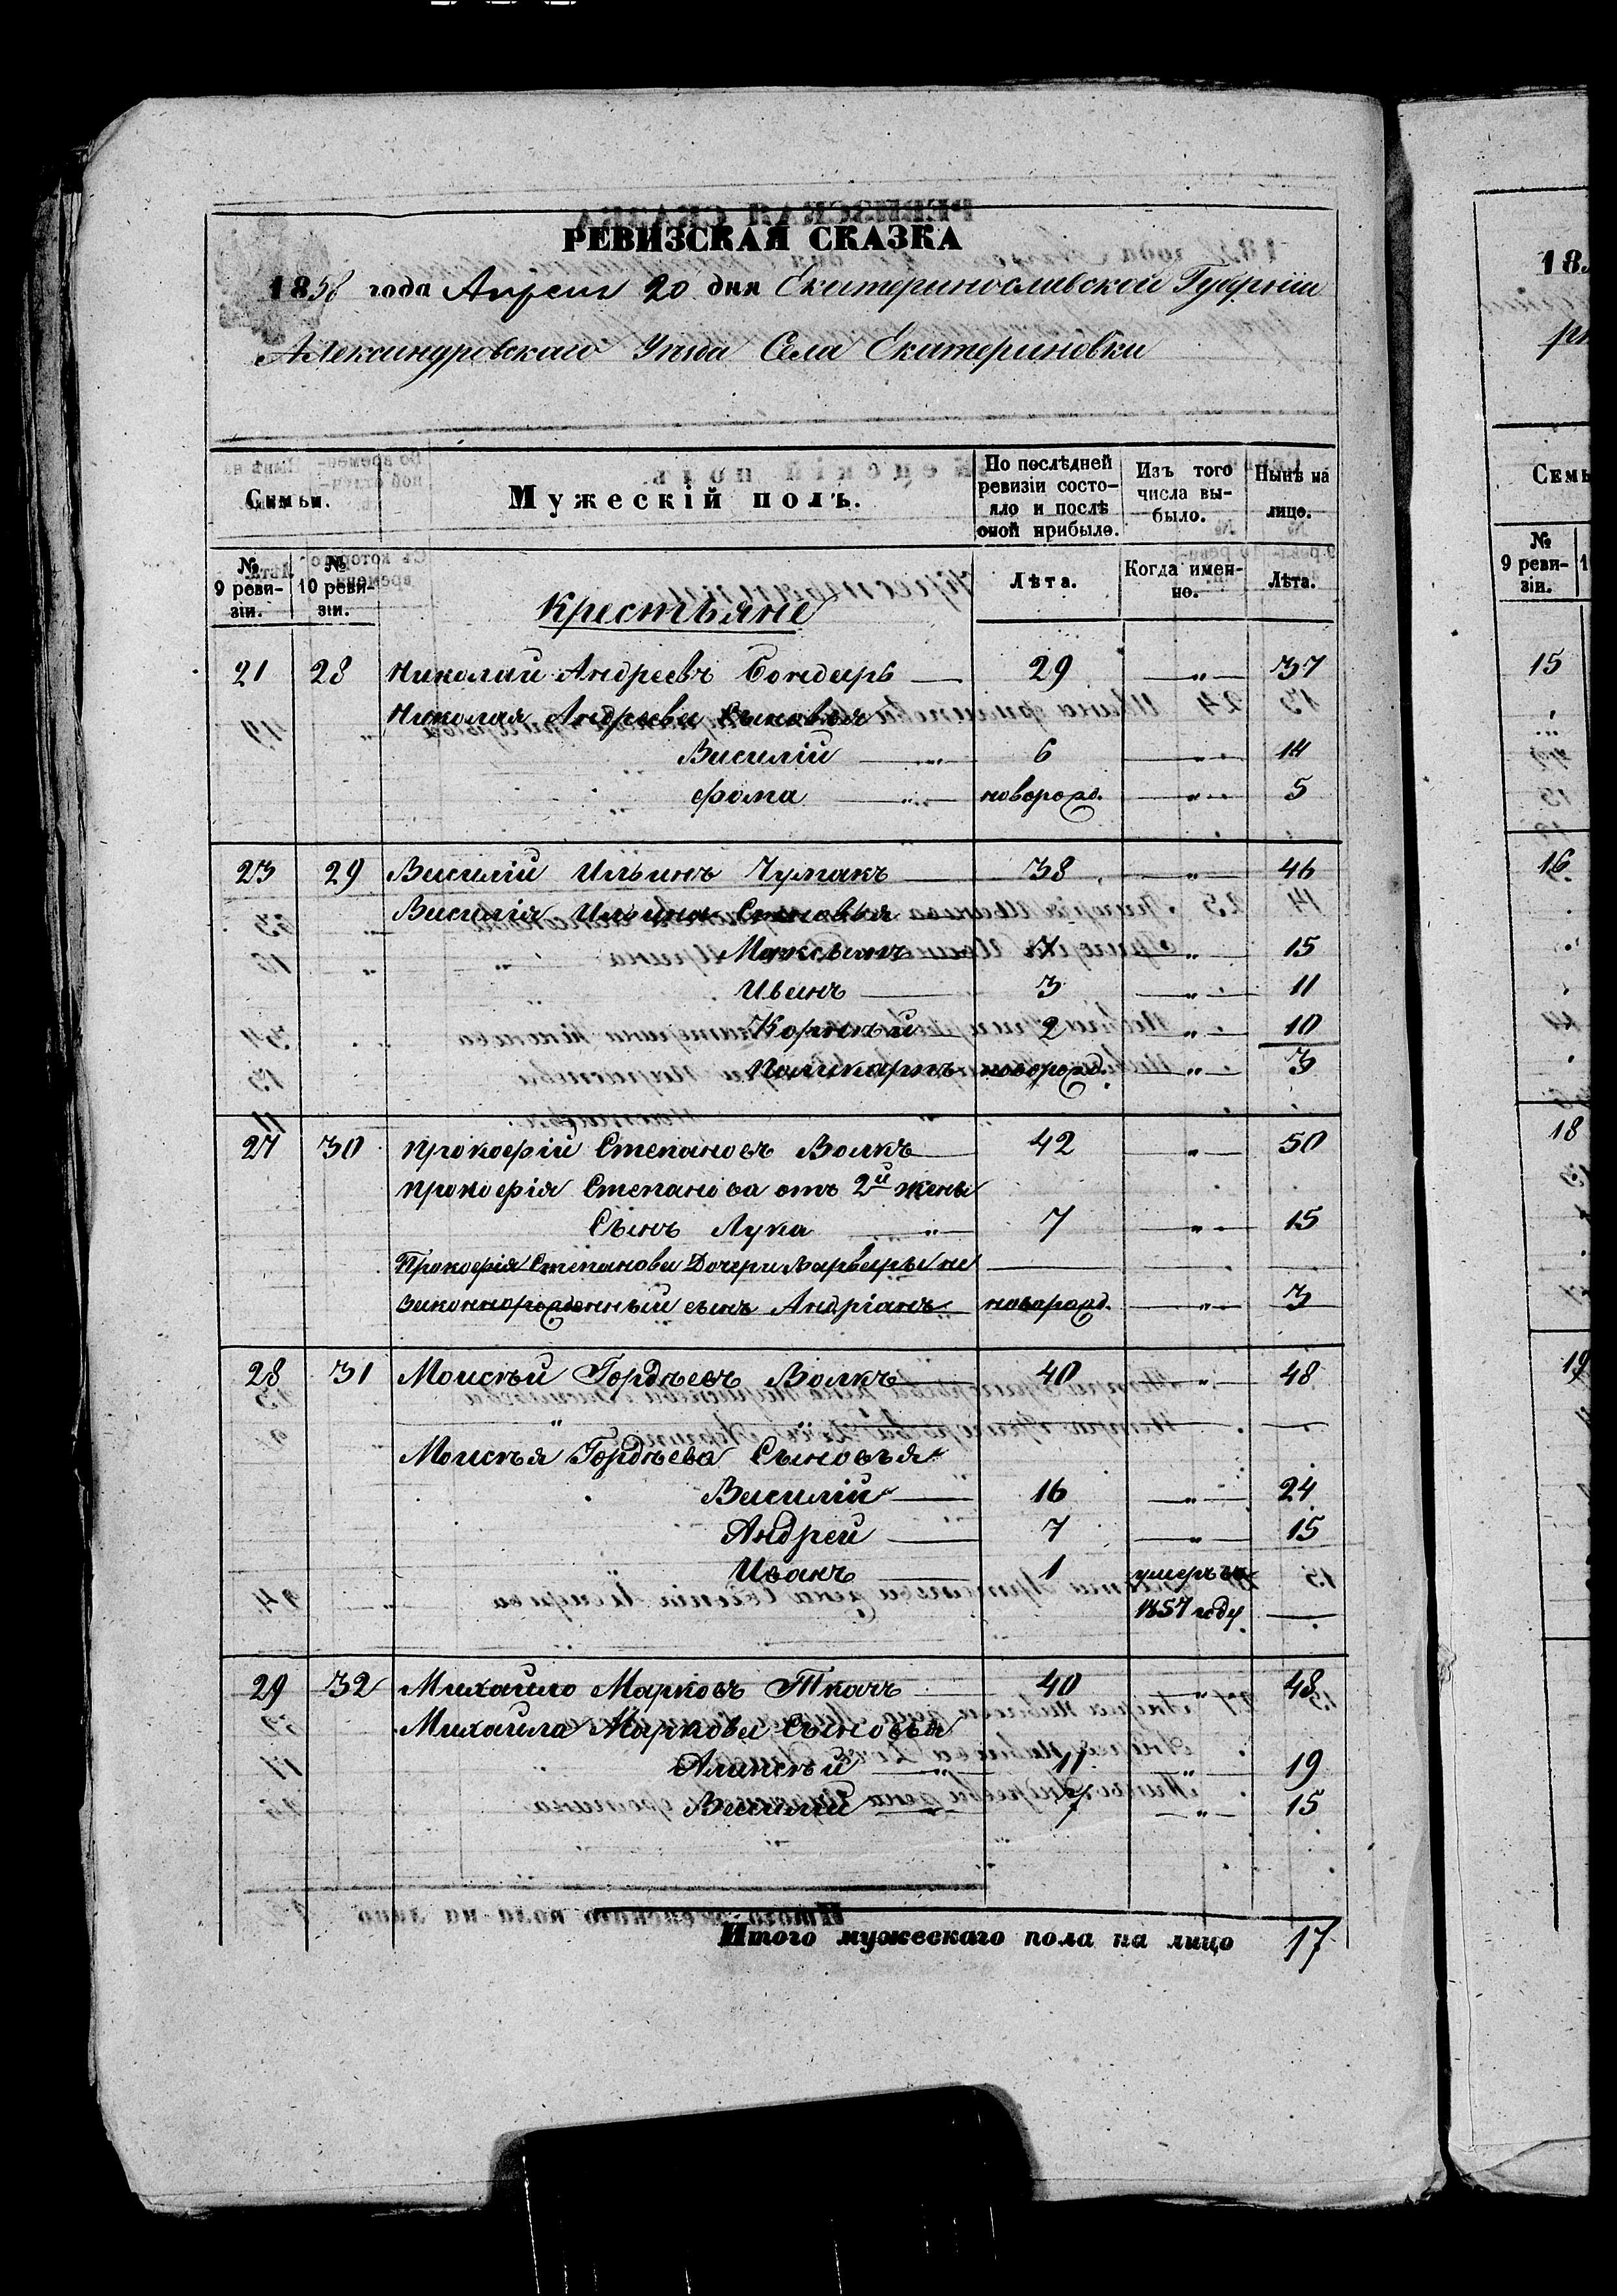 РЕВИЗСКАЯ СКАЗКА
1858 года Апреля 20 дня Екатеринославской Губерніи
Александровскаго Уѣзда Села Екатериновки
Семьи.
Мужескій полъ.
По послѣдней ревизіи состояло и послѣ оной прибыло.
Изъ того числа выбыло.
Нынѣ на лицо.
№ 9 ревизіи.
№ 10 ревизіи.
Лѣта.
Когда именно.
Лѣта.
Крестьяне
21 28 Николай Андреевъ Бондарь 29 " 37
Николая Андреева Сыновья
Василій " 6 " 14
Фома " новорожд. " 5
23 29 Василій Ильинъ Чумакъ 38 " 46
Василія Ильина Сыновья
Максымъ 7 " 15
Иванъ 3 " 11
Корнѣй 2 " 10
Поликарпъ новорожд. " 3
27 30 Прокофій Степановъ Волкъ 42 " 50
Прокофія Степанова отъ 2й жены
Сынъ Лука " 7 " 15
Прокофія Степанова Дочери Варвары не
законнорожденный сынъ Андріанъ новорожд. " 3
28 31 Моисѣй Гордѣевъ Волкъ 40 " 48
Моисѣя Гордѣева Сыновья
Василій 16 " 24
Андрей 7 " 15
Иванъ 1 умеръ въ
1857 году
29 32 Михайло Марковъ Ткачъ 40 " 48
Михайла Маркова Сыновья
Алексѣй " 11 " 19
Василій 7 " 15
Итого мужескаго пола на лицо 17
18
Семь
№
9 ревизіи.
15
16
18
19